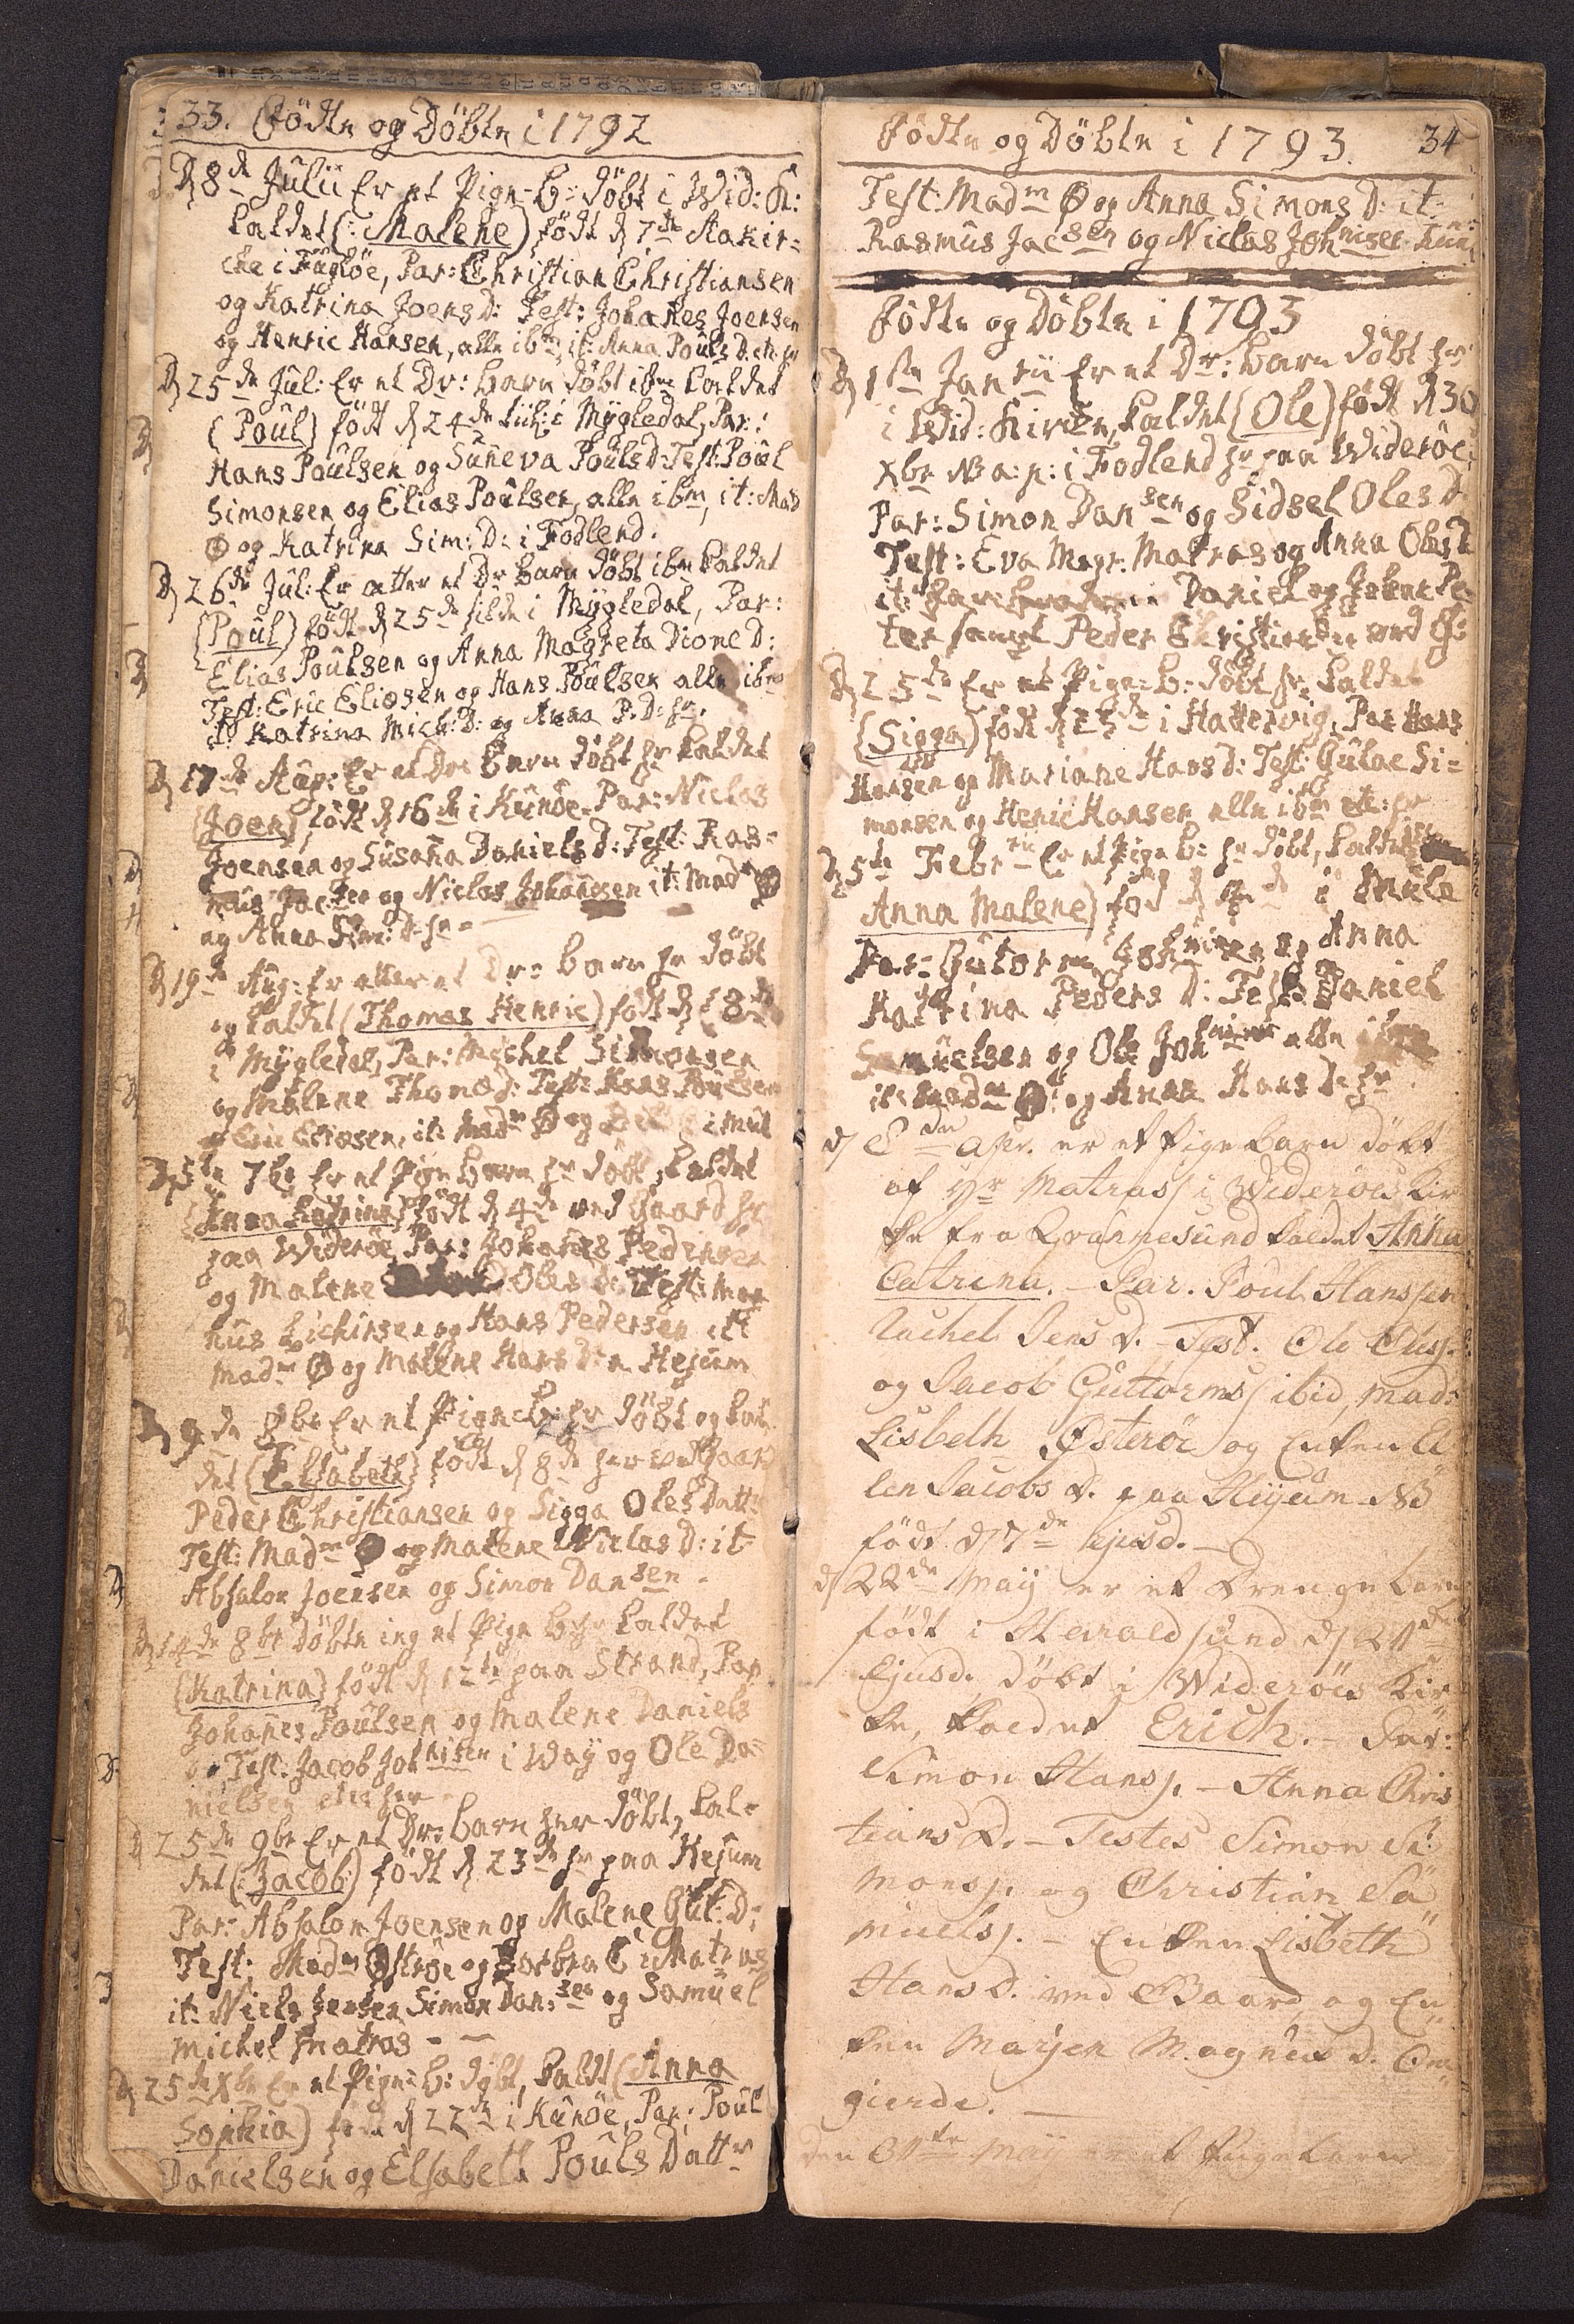 33. Födte og Döbte i 1792
D 8de Julii Er et Pige-B: döbt i Wid: K:
kaldet (: Malene) födt d 7de Aakir=
cke i Fugloe, Par: Christian Christiansen
og Katrina Joens D: Test: Johañes Joensen
og Henric Hansen, alle ibm, it: Anna Pouls D. etc. hr
D 25de Jul: Er et Dr: barn döbt ibm kaldet
(Poul) födt d 24de i Mygledal, Par:
Hans Poulsen og Suñeva Pouls D: Test: Poul
Simonsen og Elias Poulsen, alle ibm, it: Mad
Ø og Katrina Sim: D: i Fodlend.
D 26de Jul: Er atter et Dr barn döbt ibm kaldet
(Poul) födt d 25de i Mygledal, Par:
Elias Poulsen og Anna Magreta Dione D:
Test: Eric Eliasen og Hans Poulsen alle ibm
it: Katrina Mich: D: og Anna P. D: hr.
D 17de Aug: Er et Dr: barn döbt hr kaldet
(Joen) födt d 16de i Kunöe. Par: Niclas
Joensen og Susaña Daniels D: Test: Ras=
mus Jacsen og Niclas Johañesen it: Madm Ø
og Anna Sim: D: hr =
D 19de Aug: Er atter et Dr: barn hr döbt
og kaldet (Thomas Henric) födt d 18de
i Mygledal, Par: Mychel Simonsen
og Malene Thomæ D: Test: Hans Poulsen
og Eric Eliasen, it: Madm Ø og i Mul
D 5te 7br Er et Pige barn hr döbt, kaldet
(Anna Katrina) födt d 4de ved Gaard hr
paa Wideröe Par: Johañes Pedersen
og Malene Oles D: Test: Mag
nus Hans Pedersen it:
Madm Ø og Malene Hans D: a Hejum
D 9de 8br Er et Pigeb: hr döbt og kal
det (Elsabeth) födt d 8de her ved Gaard
Peder Christiansen og Sigga Oles Datt:
Test: Madm Ø og Malene Niclas D: it
Absalon Joensen og Simon Dansen.
D 14de 8br döbte ieg et Pige B: hr kaldet
(Katrina) födt d 12te paa Strand, Par
Johañes Poulsen og Malene Daniels
D: Test: Jacob Johnisen i Waÿ og Ole Da=
nielsen etc her
D 25de 9br Er et Dr: barn her döbt, kal=
det (: Jacob) födt d 23de hr paa Hejum
Par: Absalon Joensen og Malene Gut: D:
Test: Madm Øströe og Barbra C: Matras
it: Niels Jensen Simon Dan:sen og Samuel
Michel Matras - —
D 25de Xbr Er et Pige-B: döbt, kaldt (Anna
Sophia) födt d 22de i Kunöe, Par: Poul
Danielsen og Elsabeth Pouls Dattr
Födte og Döbte i 1793. 34
Test: Madm Ø og Anna Simons D: it:
Rasmus Jacsen og Niclas Johnisen
Födte og Döbte i 1793
D 1ste Janrii Er et Dr: barn döbt hr
i Wid: Kircke, kaldet (Ole) födt d 30
Xbr a: p: i Fodlend hr paa Wideröe
Par: Simon Dansen og Sidsel Oles D
Test: Eva Magr. Matras og Anna Oles D
it: Daniel og Pe
ter samt Peder Christiansen ved G:
D 25de Er et Pige-B: döbt hr kaldet
(Sigga) födt d 23de i Hattervig, Par Hans
Hansen og Mariane Hans D: Test: Gulae Si=
monsen og Henric Hansen alle ibm etc: hr
D 5te Febrrii Er et Pige b: hr döbt, kaldet
Anna Malene) föd d i Mule
Par: Gutorm Johnisen og Anna
Katrina Peders D: Test: Daniel
Samuelsen og Ole Johnisen alle ibm
it: Madm Ø: og Anna Hans D: hr
d 8de Apr. er et Pigebarn döbt
af Hr Matrass i Wideröes Kir
ke fra Qvannesund kaldet Anna
Catrina. — Par. Poul Hanssen
Rachel Jens D. — Test. Ole Oles.
og Jacob Guttorms/ ibid, Mad:
Lisbeth Østeröe og Enken El
len Jacobs D. paa Heÿum NB
födt d 7de ejusd. —
d 22de Maÿ er et Drengebarn
födt i Haraldsund d 21de
Ejusd. döbt i Wideröes Kir
ke, kaldet Erich. — Par:
Simon Hans. — Anna Chris
tians D. — Testes Simon Si
mons. og Christian Sa
muels. — Enken Lisbeth
Hans D. ved Gaard, og En
ken Marjen Magnus D. On
gierde. —
den 31te Maÿ er et Pigebarn